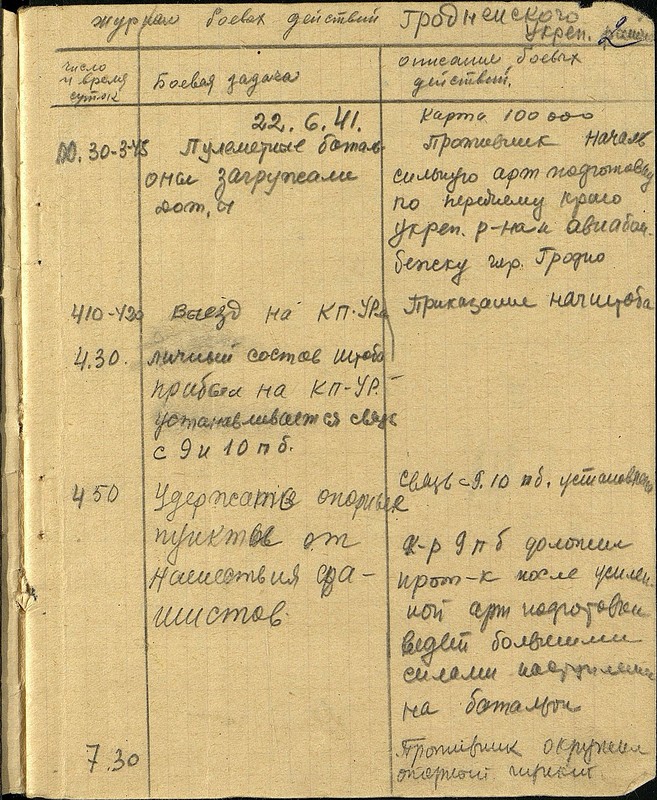 журнал боевых действий Гродненского
укреп.
2
число
и время
суток
Боевая задача
описание боевых
действий.
22. 6. 41.
Карта 100 000
00.30-3-45
Пулеметные баталь
оны загружали
дот,ы
Противник начал
сильную арт подготовку
по переднему краю
укреп. р-на и авиабом.
бежку гор. Гродно
410-420
Выезд на КП-УРа
Приказание начштоба
4.30.
личный состав штоба
прибыл на КП-УР.
устанавливается связь
с 9 и 10 пб.
Связь с 9. 10 пб. установлена
4 50
Удержание опорных
пунктов от
нашествия фа-
шистов.
к-р 9 пб доложил
прот-к после усилен
ной арт подготовки
ведет большими
силами наступление
на батальон
7.30
Противник окружил
опорный пункт.